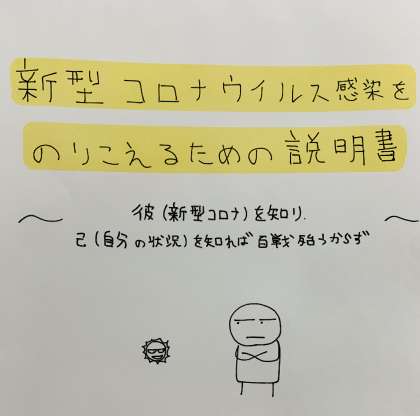 新型コロナウイルス感染を
のりこえるための説明書
～彼(新型コロナ)を知り.～
己(自分の状況)を知れば百戦殆うからず